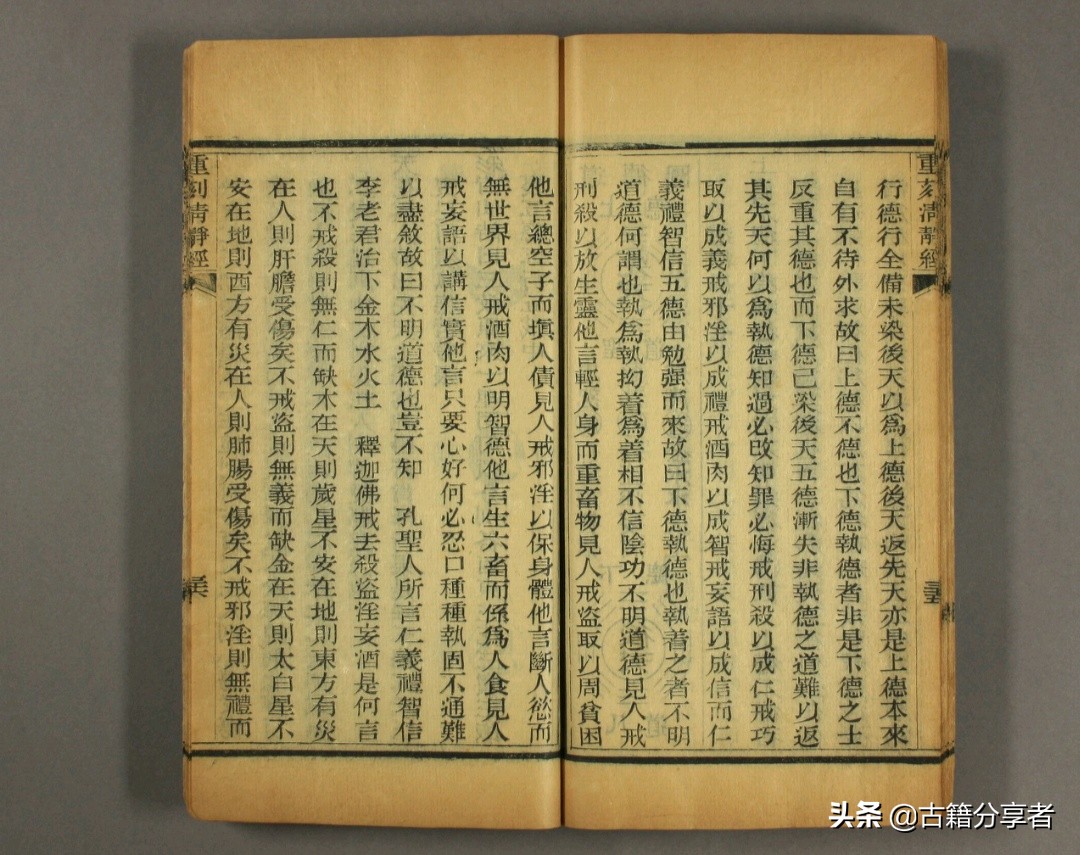 重刻清靜經
行德行全備未染後天以為上德後天返先天亦是上德本來
自有不待外求故曰上德不德也下德執德者非是下德之士
反重其德也而下德已染後天五德漸失非執德之道難以返
其先天何以為執德知過必改知罪必悔戒刑殺以成仁戒巧
取以成義戒邪淫以成禮戒酒肉以成智戒妄語以成信而仁
義禮智信五德由勉强而來故曰下德執德也執著之者不明
道德何謂也執為執抝着為着相不信陰功不明道德見人戒
刑殺以放生靈他言輕人身而重畜物見人戒盜取以周貧困
他言總空子而塡人債見人戒邪淫以保身體他言斷人慾而
無世界見人戒酒肉以明智德他言生六畜而係為人食見人
戒妄語以講信實他言只要心好何必忍口種種執固不通難
以盡敘故曰不明道德也豈不知 孔聖人所言仁義禮智信
李老君治下金木水火土 釋迦佛戒去殺盜淫妄酒是何言
也不戒殺則無仁而缺木在天則歲星不安在地則東方有災
在人則肝膽受傷矣不戒盜則無義而缺金在天則太白星不
安在地則西方有災在人則肺腸受傷矣不戒邪淫則無禮而
重刻清靜經
头条 @古籍分享者